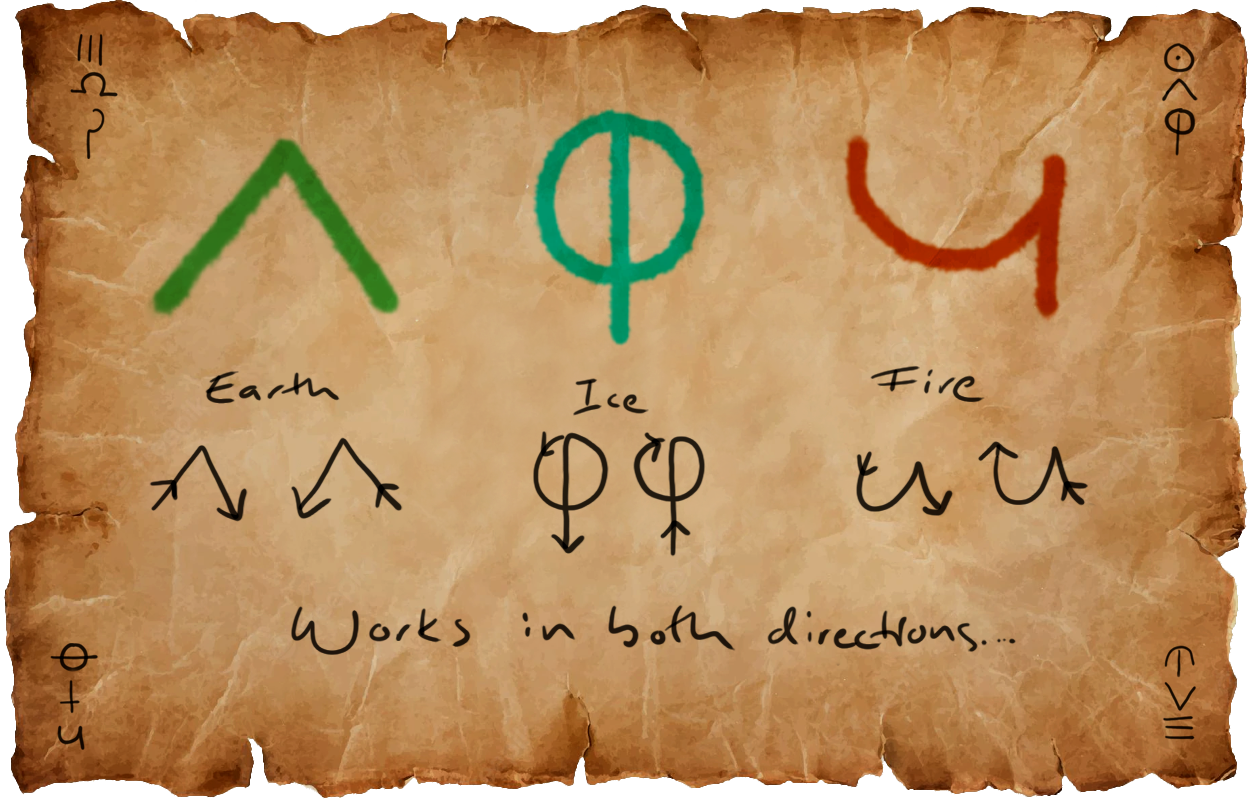 Earth
Ice
Fire
Works in both directions...